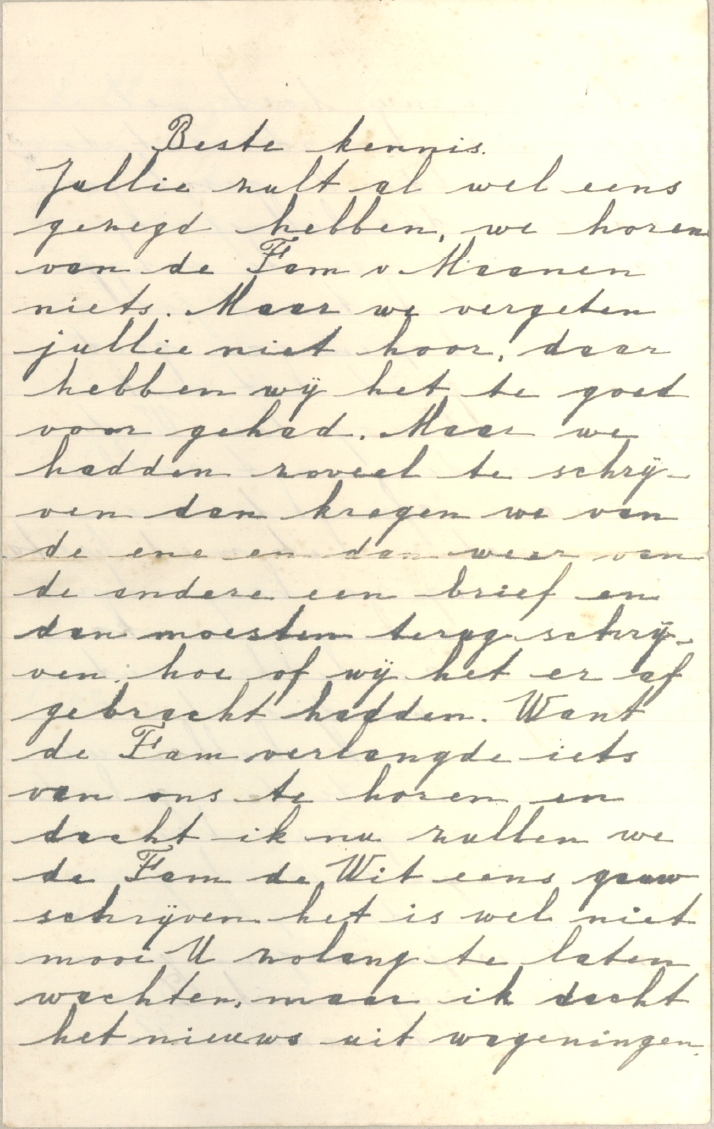 Beste kennis.
Jullie zult al wel eens
gezegd hebben, we horen
van de Fam v Maanen
niets. Maar we vergeten
jullie niet hoor, daar
hebben wij het te goed
voor gehad. Maar we
hadden zoveel te schrij-
ven dan kregen we van
de ene en dan weer van
de andere een brief en
dan moesten terug schrij-
ven, hoe of wij het er af
gebracht hadden. Want
de Fam verlangde iets
van ons te horen en
dacht ik nu zullen we
de Fam de Wit eens gauw
schrijven het is wel niet
mooi U zolang te laten
wachten, maar ik dacht
het nieuws uit wageningen.